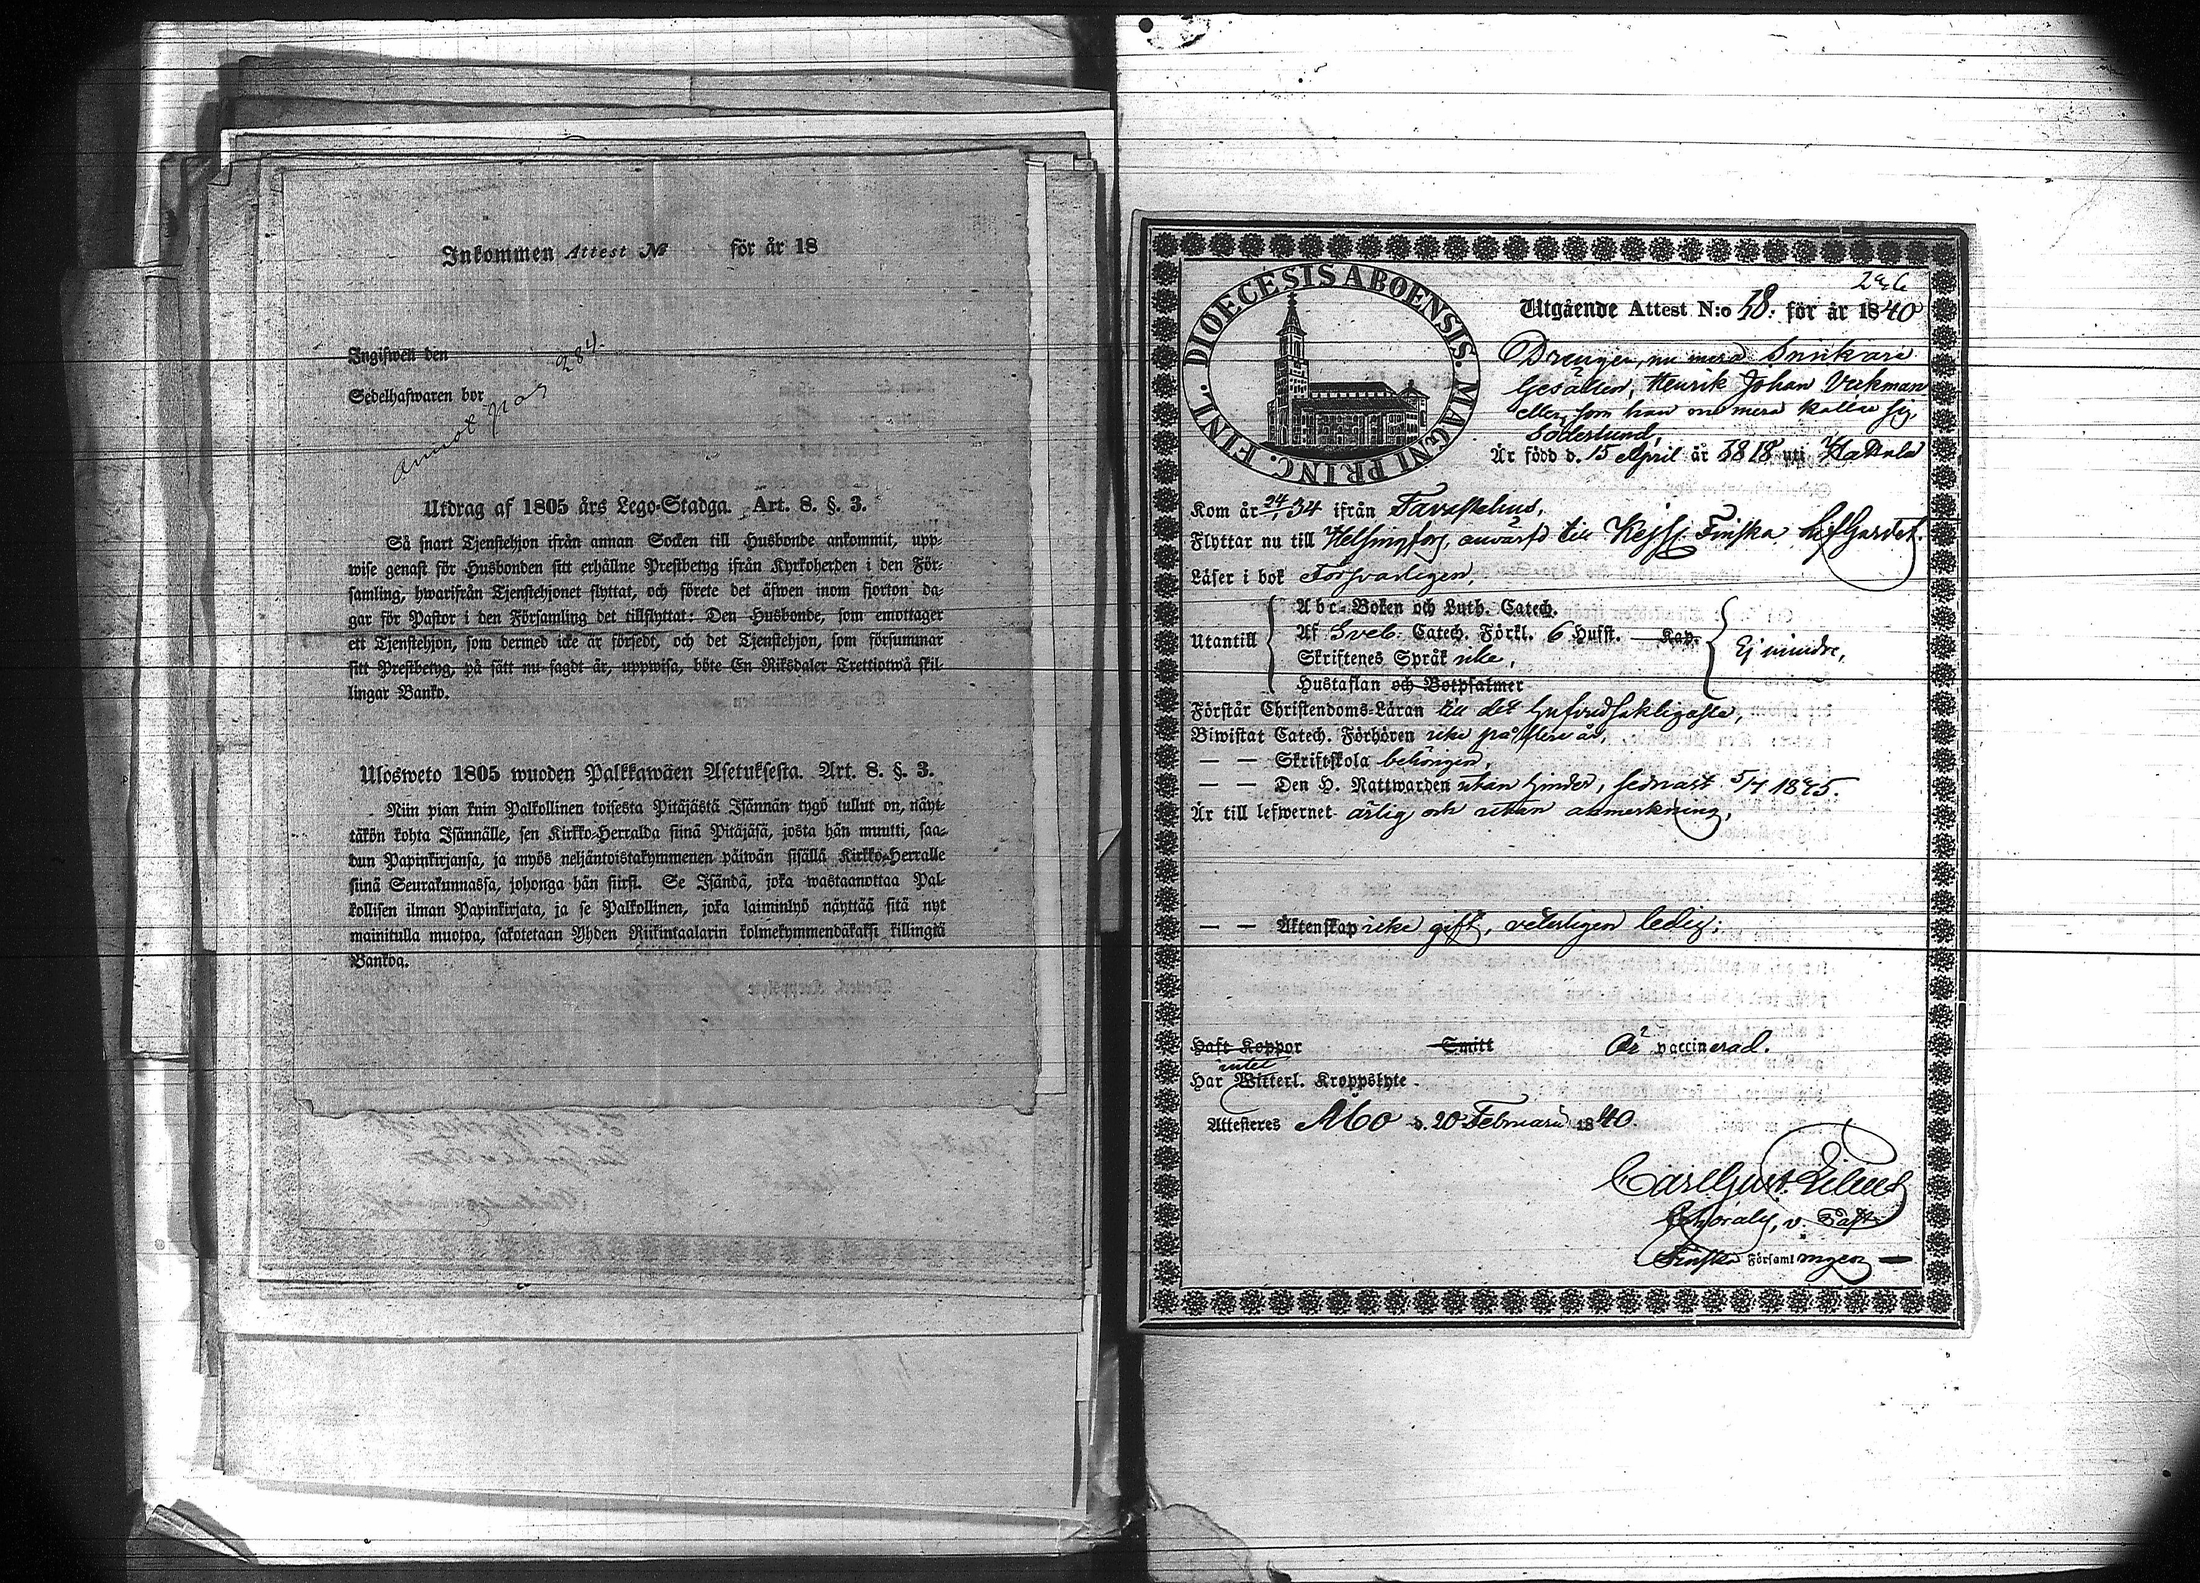 Inkommen Attest No för år 18
Ingifwen den
284.
Sedelhafwaren bor
Utdrag af 1805 års Lego-Stadga. Art. 8. §. 3.
Så snart Tjenstehjon ifrån annan Socken till Husbonde ankommit, upp-
wise genast för Husbonden sitt erhållne Prestbetyg ifrån Kyrkoherden i den För-
samling, hwarifrån Tjenstehjonet flyttat, och förete det äfwen inom fjorton da-
gar för Pastor i den Församling det tillflyttat: Den Husbonde, som emottager
ett Tjenstehjon, som dermed icke är försedt, och det Tjenstehjon, som försummar
sitt Prestbetyg, på sätt nu sagdt är, uppwisa, böte En Riksdaler Trettiotwå skil-
lingar Banko.
Ulosweto 1805 wuoden Palkkawäen Asetuksesta. Art. 8. §. 3.
Niin pian kuin Palkollinen toisesta Pitäjästä Isännän tygö tullut on, näyt-
täkön kohta Isännälle, sen Kirkko-Herralda siinä Pitäjäsä, josta hän muutti, saa-
dun Papinkirjansa, ja myös neljäntoistakymmenen päiwän sisällä Kirkko-Herralle
siinä Seurakunnassa, johonga hän siirsi. Se Isändä, joka wastaanottaa Pal-
kollisen ilman Papinkirjata, ja se Palkollinen, joka laiminlyö näyttää sitä nyt
mainitulla muotoa, sakotetaan Yhden Riikintaalarin kolmekymmendäkaksi killingiä
Bankoa.
DIOECESIS ABOENSIS. MAGNI PRINC. FINL.
Utgående Attest N:o 18. för år 1840
Drengen, nu mera Snikare
Gesällen, Henrik Johan Vikman
eller, som han nu mera kallar sig,
Söderlund,
Är född d. 15 April år 1818 uti
Kom år 24/ 34 ifrån Tavastehus,
Flyttar nu till Helsingfors, anvärfd till Kejs. Finska LifGardet.
Läser i bok Försvarligen,
Abc-Boken och Luth. Catech.
Utantill Af Sveb. Catech. Förkl. 6 Hufst. Kap. Ej mindre,
Skriftenes Språk icke,
Hustaflan och Botpsalmer
Förstår Christendoms-Läran till det hufvudsakligaste,
Biwistat Catech. Förhören icke på flere år,
— — Skriftskola behörigen,
— — Den H. Nattwarden utan hinder, sednast
Är till lefwernet ärlig och utan anmerkning,
— — Äktenskap icke gift, veterligen ledig;
Haft Koppor Smitt Är vaccinerad.
intet
Har Witterl. Kroppslyte
Attesteres Åbo d. 20 Februarii 1840.
Carl Gust.
v. Past.
Finska Församlingen